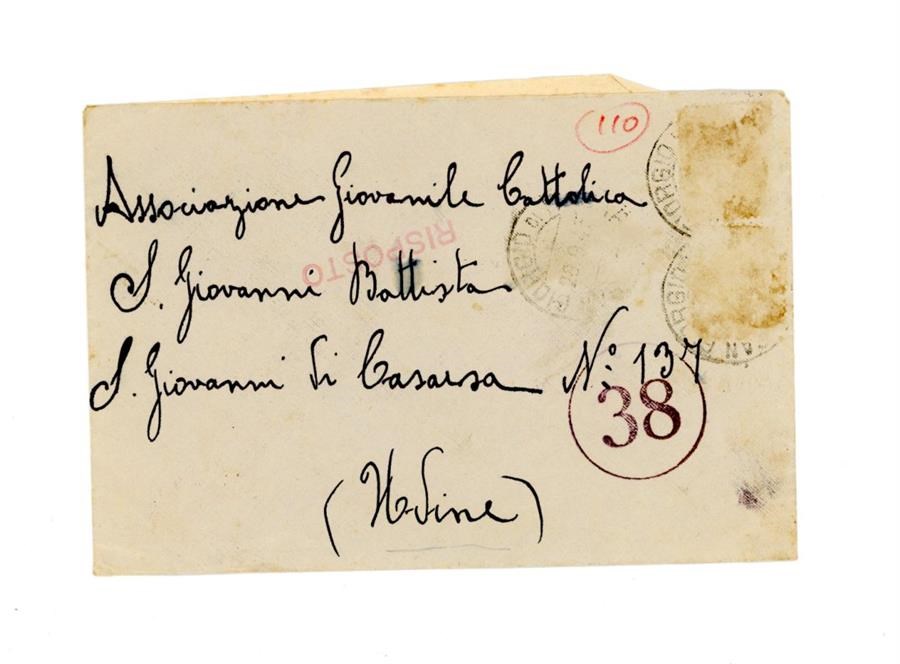 110
Associazione Giovanile Cattolica
RISPOSTO
S. Giovanni Battista
S. Giovanni di Casarsa N.º 137
38
(Udine)